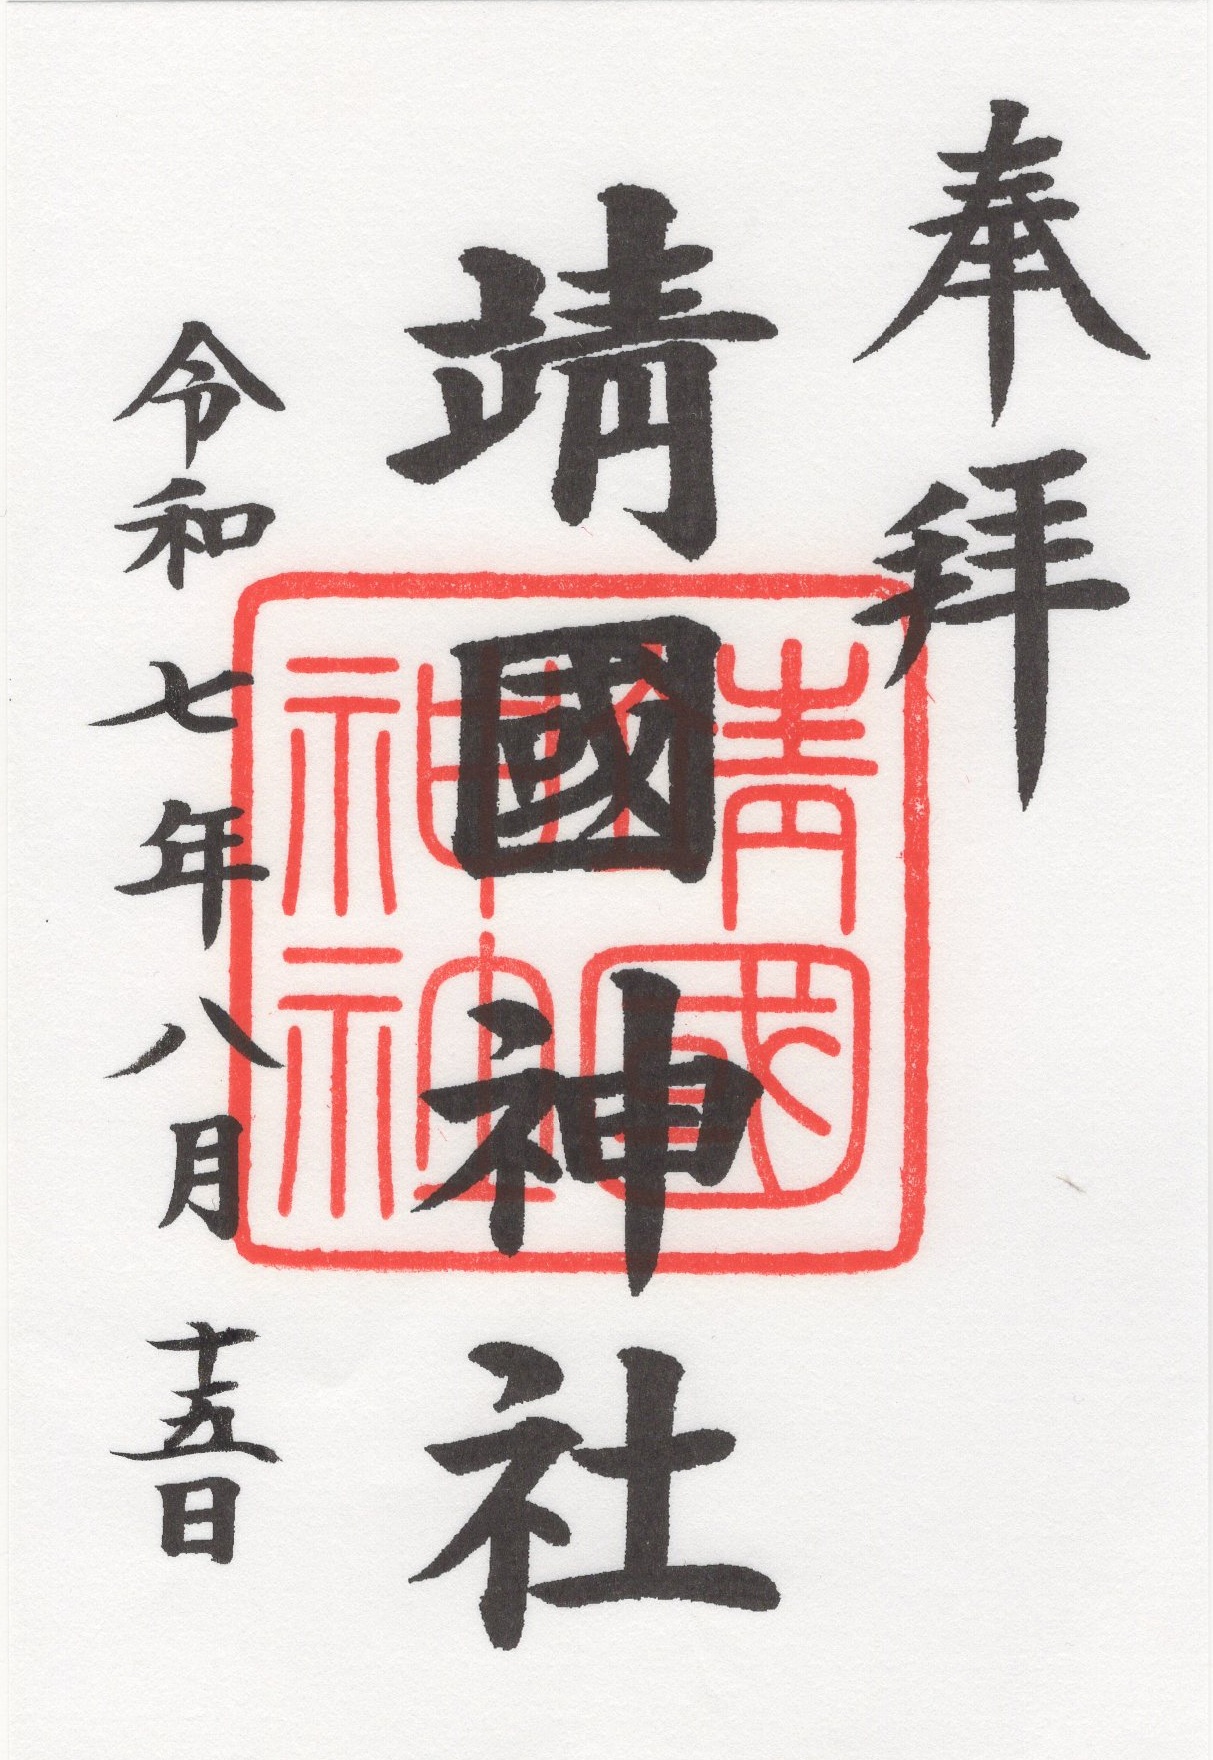 奉拜
靖國神社
令和七年八月十五日
靖國
神社